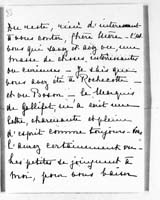 Du reste, rien d'intéressant
à vous conter, chère Mère. C'est
vous qui avez vu une
masse de choses intéressantes
ou curieuses — Je sais que
vous avez été à Rochecotte —
et vu Boson — Le Marquis
de Jallifet, m'a écrit une
lettre, charmante et pleine
d'esprit comme toujours. Vous
l'aurez certainement vu
les petites se joignent à
moi, pour vous baiser